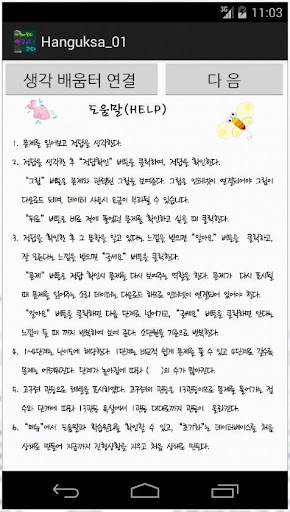 3G 11:03
Hanguksa_01
생각 배움터 연결
다 음
도움말(HELP)
1. 문제를 읽어보고 정답을 생각한다.
2. 정답을 생각한 후 "정답확인" 버튼을 클릭하여, 정답을 확인한다.
"그림" 버튼은 문제와 관련된 그림을 보여준다. 그림은 인터넷이 연결되어야 그림이
다운로드 되며, 데이터 사용시 요금이 부과될 수 있습니다.
"뒤로" 버튼은 바로 전에 풀었던 문제를 확인하고 싶을 때 클릭한다.
3. 정답을 확인한 후 그 문항을 알고 있다는 느낌을 받으면 "알아요" 버튼을 클릭하고,
잘 모른다는 느낌을 받으면 "글세요" 버튼을 클릭한다.
"문제" 버튼은 정답 확인시 문제를 다시 보여주는 역할을 한다. 문제가 다시 표시될
때 문제를 읽어주는 소리 데이터는 다운로드 하므로 인터넷이 연결되어 있어야 한다.
"알아요" 버튼을 클릭하면 다음 단계로 넘어가고, "글세요" 버튼을 클릭하면 안다는
느낌이 들 때 까지 반복하여 보여 준다. 소단원을 기준으로 반복한다.
4. 1~4단계는 난이도에 해당한다. 1단계는 비교적 쉽게 문제를 풀 수 있고 4단계로 갈수록
문제는 어려워진다. 단계가 높아짐에 따라 ( )의 수가 많아진다.
5. 고구려 관등으로 레벨을 표시하였다. 고구려의 관등은 13관등이므로 문제를 풀어가는 점
수와 단계에 따라 13관등 욕살에서 1관등 대대로까지 관등이 올라간다.
6. "메뉴"에서 도움말과 학습범위를 확인할 수 있고, "초기화"는 데이터베이스를 처음
상태로 만들어 지금까지 진행상황을 지우고 처음 상태로 만든다.